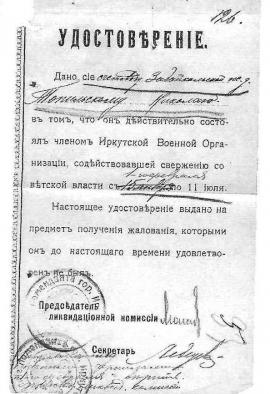 126.
УДОСТОВѢРЕНІЕ.
Дано сіе Забайкальской
Николаю
въ томъ, что онъ дѣйствительно состо-
ялъ членомъ Иркутской Военной Орга-
низаціи, содѣйствовавшей сверженію со-
вѣтской власти съ по 11 іюля.
Настоящее удостовѣреніе выдано на
предметъ полученія жалованія, которымъ
онъ до настоящаго времени удовлетво-
ренъ не былъ.
Предсѣдатель
ликвидаціонной комиссіи
Секретарь